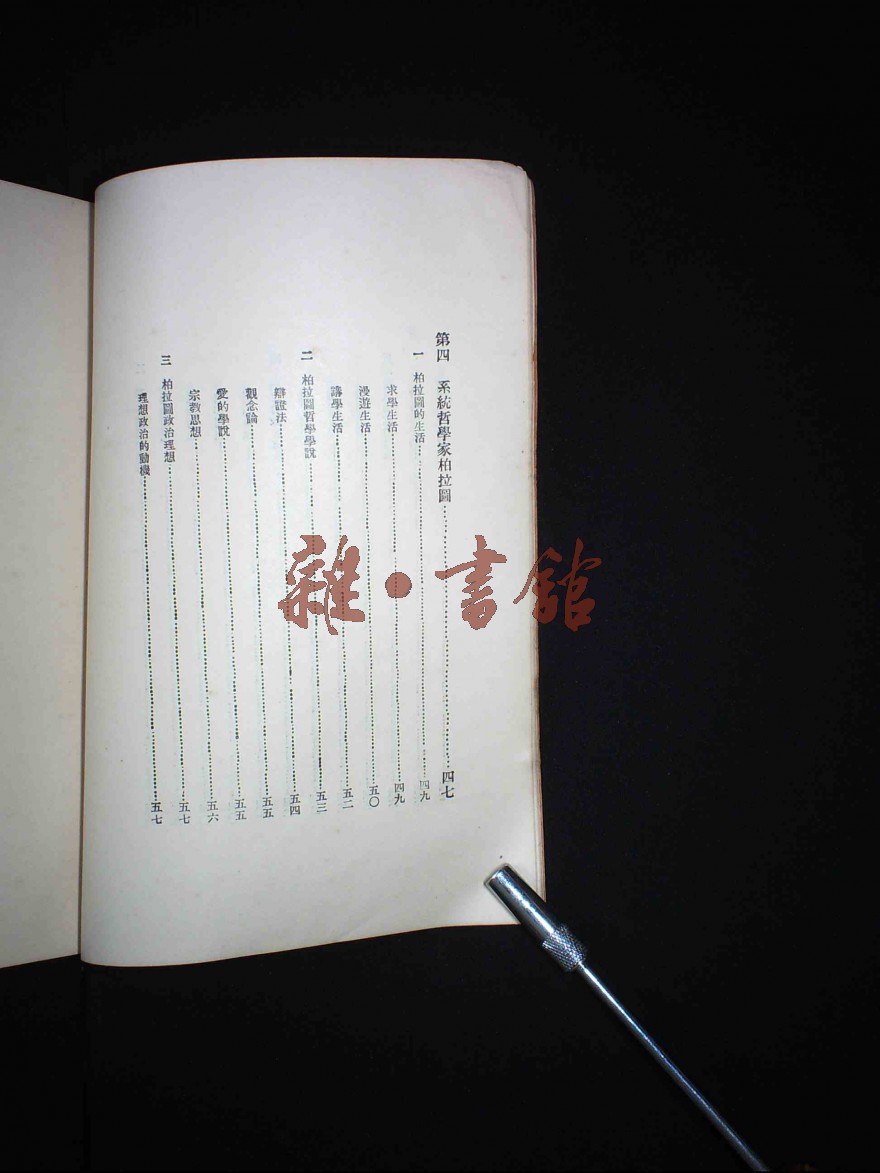 第四 系統哲學家柏拉圖……四七
一 柏拉圖的生活……四九
求學生活……四九
漫遊生活……五〇
講學生活……五二
二 柏拉圖哲學學說……五三
辯證法……五四
觀念論……五五
愛的學說……五五
宗教思想……五六
三 柏拉圖政治理想……五七
理想政治的動機……五七
雜•書館